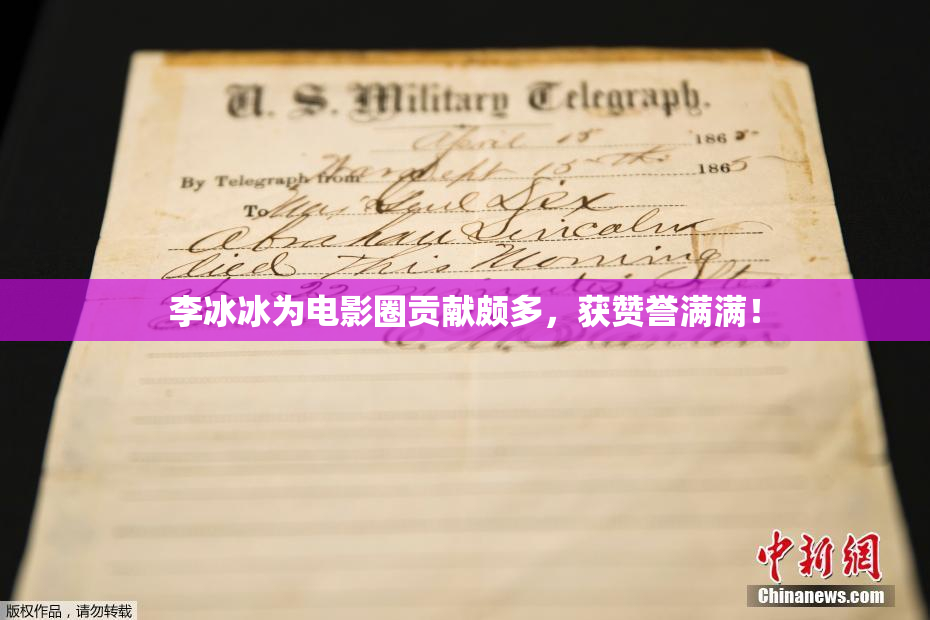 U. S. Military Telegraph.
April 15 1865
By Telegraph from War Dept 15th 1865
To Maj Genl Dix
Abraham Lincoln
died This Morning
22 minutes after
李冰冰为电影圈贡献颇多，获赞誉满满！
E. M. Stanton
中新网
Chinanews.com
版权作品，请勿转载